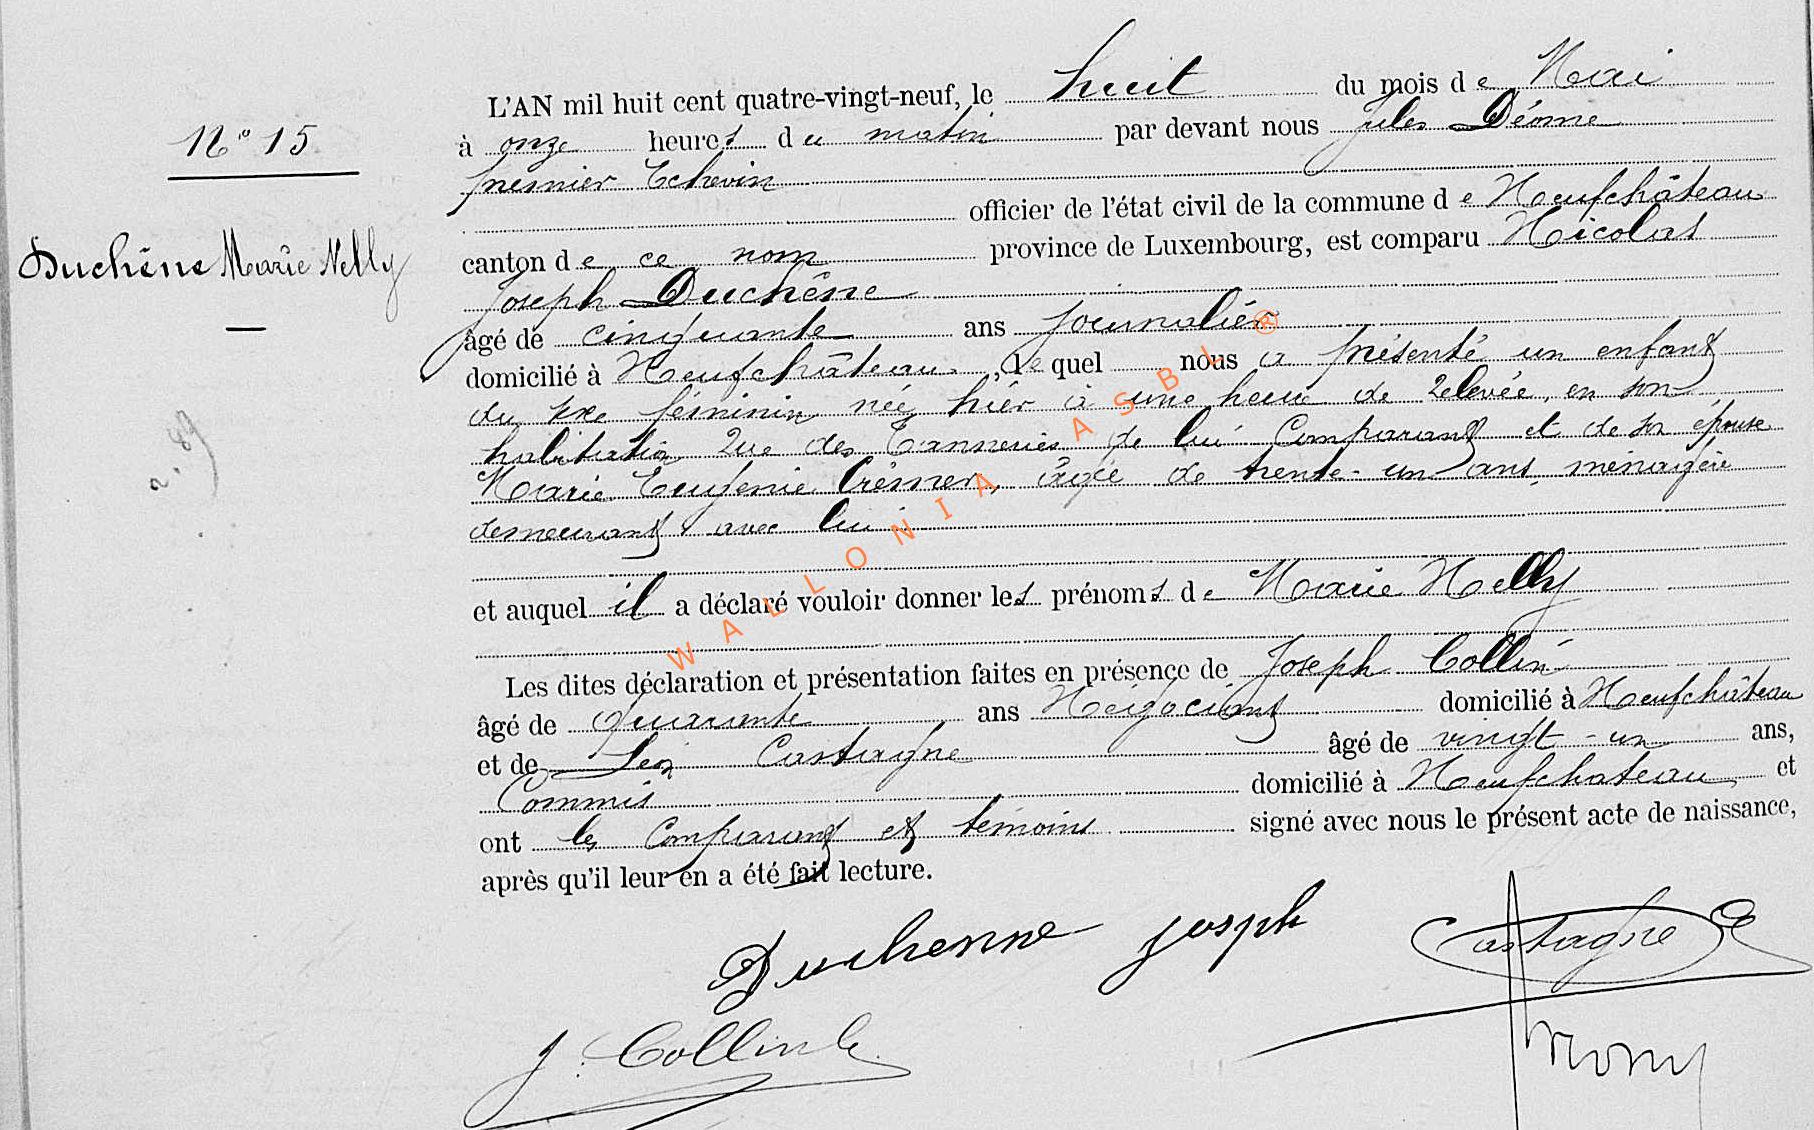 N° 15
Duchêne Marie Nelly
L'AN mil huit cent quatre-vingt-neuf, le huit du mois de Mai
à onze heures du matin par devant nous Jules Déome
premier Echevin
officier de l'état civil de la commune de Neufchâteau
canton de ce nom province de Luxembourg, est comparu Nicolas
Joseph Duchêne
âgé de cinquante ans journalier
domicilié à Neufchâteau, lequel nous a présenté un enfant
du sexe féminin née hier à une heure de relevée, en son
habitation rue des Tanneries de lui Comparant et de son épouse
Marie Eugénie Crémer, âgée de trente-un ans, ménagère
demeurant avec lui
et auquel il a déclaré vouloir donner les prénoms de Marie Nelly
Les dites déclaration et présentation faites en présence de Joseph Collin
âgé de Quarante ans Négociant domicilié à Neufchâteau
et de Léon Castagne âgé de vingt-un ans,
Commis domicilié à Neufchateau et
ont les Comparant et témoins signé avec nous le présent acte de naissance,
après qu'il leur en a été fait lecture.
Duchenne Josph
Castagne
J. Collin
WALLONIA ASBL ®